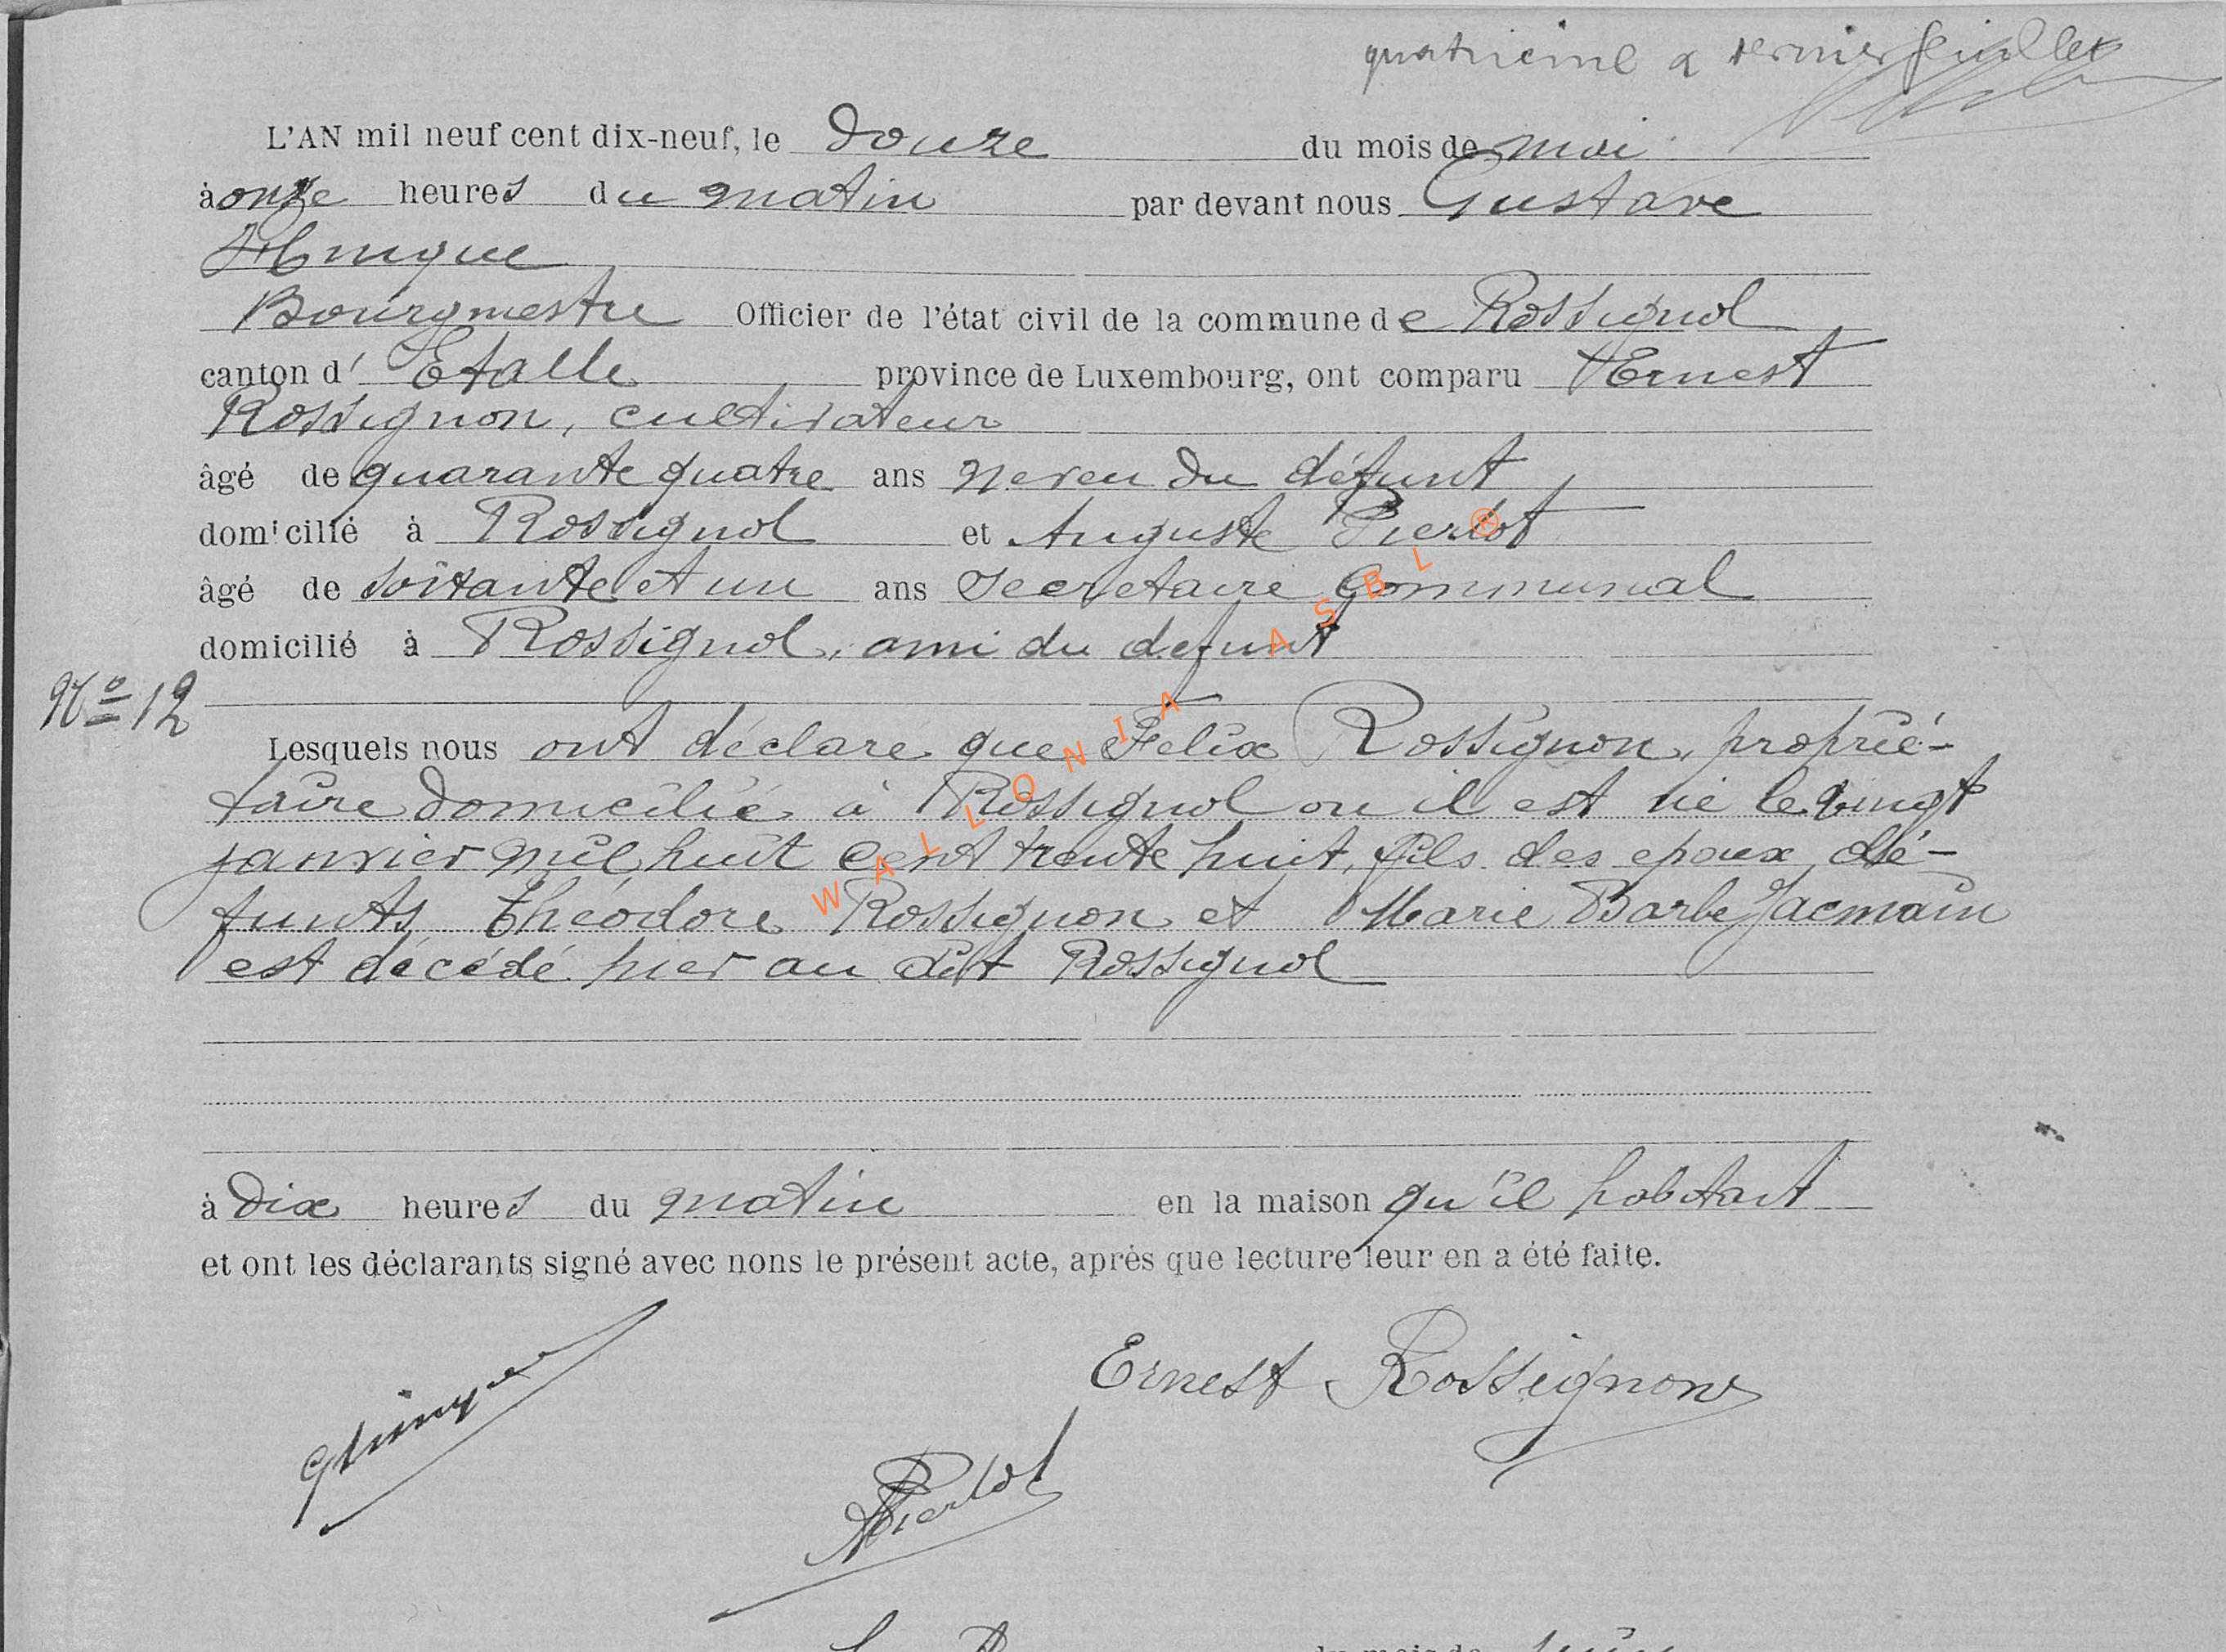 quatrième & dernier feuillet
L'AN mil neuf cent dix-neuf, le douze du mois de mai
à onze heures du matin par devant nous Gustave
Hinque
Bourgmestre Officier de l'état civil de la commune de Rossignol
canton d' Etalle province de Luxembourg, ont comparu Ernest
Rossignon, cultivateur
âgé de quarante quatre ans neveu du défunt
domicilié à Rossignol et Auguste Pierlot
âgé de soixante et un ans Secretaire Communal
domicilié à Rossignol, ami du defunt
No 12
Lesquels nous ont déclaré que Felix Rossignon, proprié-
taire domicilié à Rossignol ou il est né le vingt
janvier mil huit cent trente huit, fils des epoux dé-
funts, Théodore Rossignon et Marie Barbe Jacmain
est décédé hier au dit Rossignol
à dix heures du matin en la maison qu'il habitait
et ont les déclarants signé avec nons le présent acte, après que lecture leur en a été faite.
Ernest Rossignon
APierlot
WALLONIA ASBL ®
du mois de juin